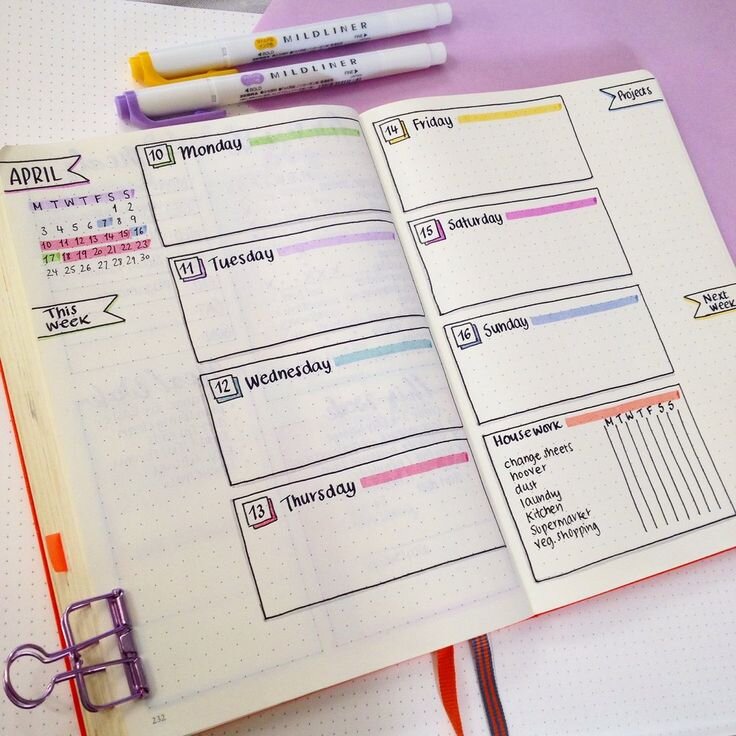 MILDLINER
BOLD
FINE
ZEBRA
MILDLINER
BOLD
FINE
ZEBRA
APRIL
M T W T F S S
1 2
3 4 5 6 7 8 9
10 11 12 13 14 15 16
17 18 19 20 21 22 23
24 25 26 27 28 29 30
This
week
10 Monday
11 Tuesday
12 Wednesday
13 Thursday
232
14 Friday
15 Saturday
16 Sunday
Housework
M T W T F S S
change sheets
hoover
dust
laundry
kitchen
supermarket
veg. shopping
Projects
Next
week